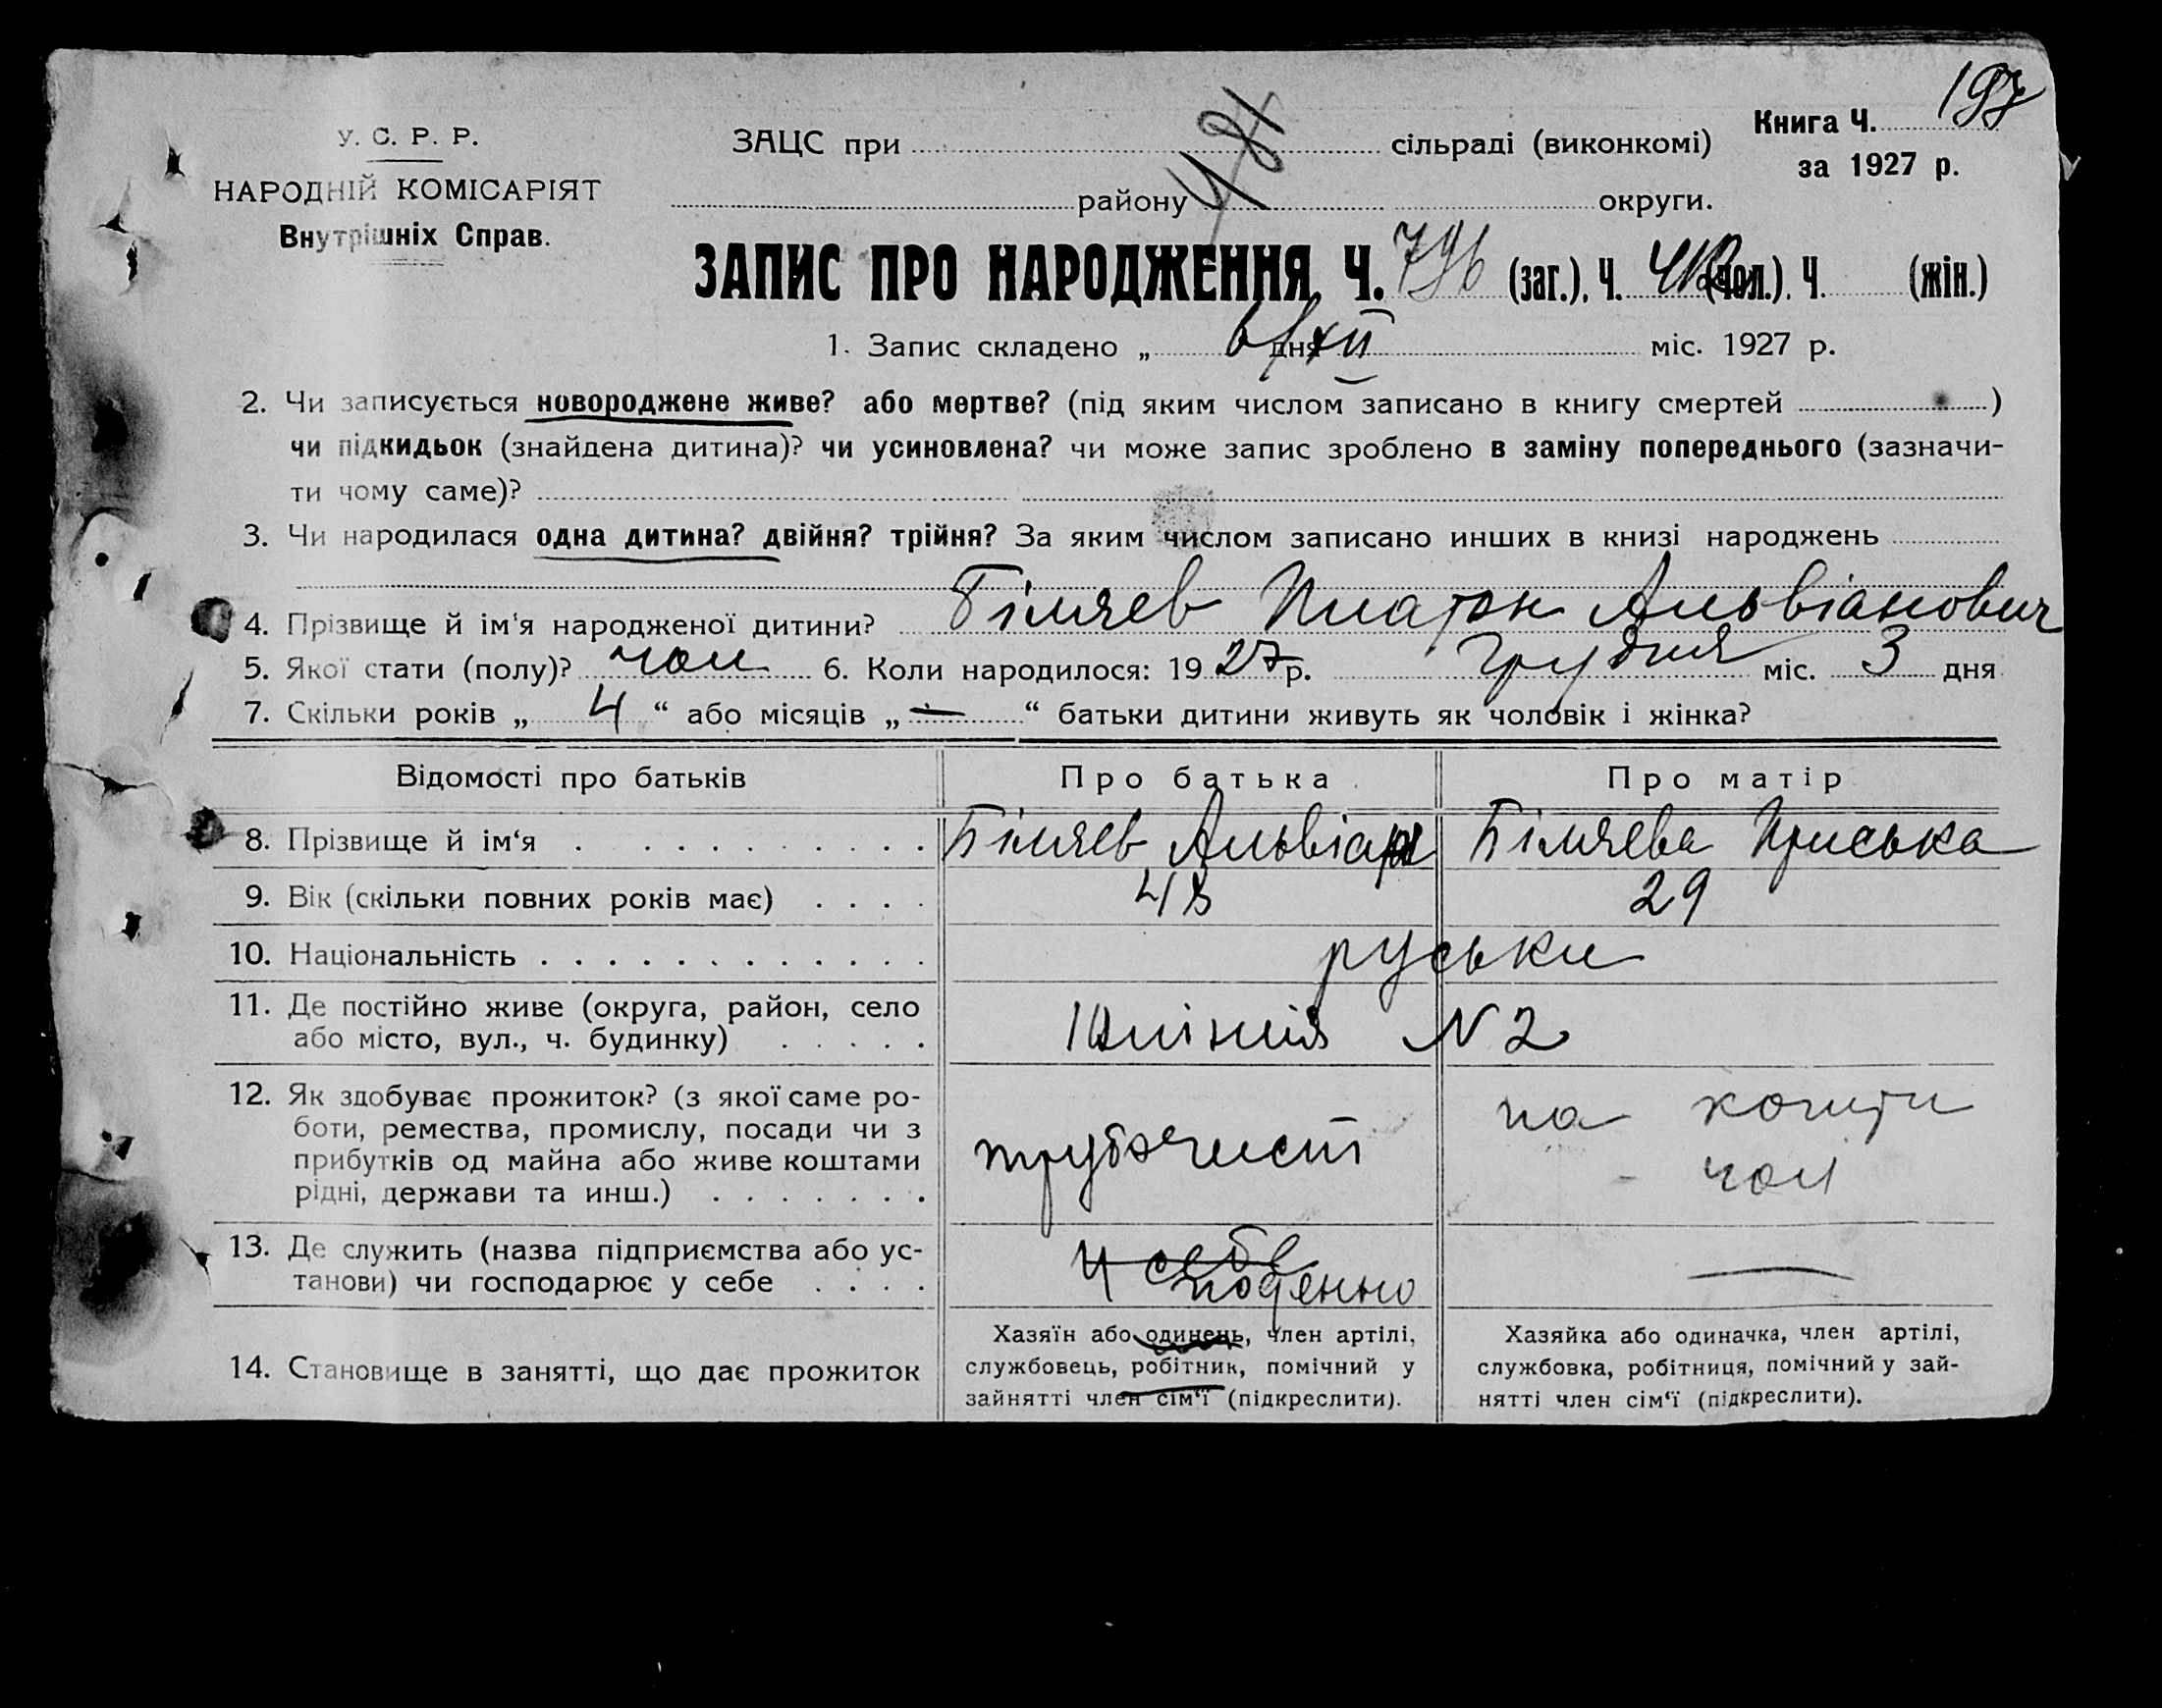 197
У. С. Р. Р.
НАРОДНІЙ КОМІСАРІЯТ
Внутрішніх Справ.
ЗАЦС при сільраді (виконкомі)
району округи.
Книга Ч.
за 1927 р.
ЗАПИС ПРО НАРОДЖЕННЯ, Ч. 796 (заг.), Ч. (чол.). Ч. (жін.)
1. Запис складено „ 6/XII дня міс. 1927 р.
2. Чи записується новороджене живе? або мертве? (під яким числом записано в книгу смертей )
чи підкидьок (знайдена дитина)? чи усиновлена? чи може запис зроблено в заміну попереднього (зазначи-
ти чому саме)?
3. Чи народилася одна дитина? двійня? трійня? За яким числом записано инших в книзі народжень
4. Прізвище й ім'я народженої дитини? Біляєв Платон Альвіанович
5. Якої стати (полу)? чол 6. Коли народилося: 1927 р. Грудня міс. 3 дня
7. Скільки років „ 4 “ або місяців „ — “ батьки дитини живуть як чоловік і жінка?
Відомості про батьків Про батька Про матір
8. Прізвище й ім'я Біляєв Альвіан Біляєва Приська
9. Вік (скільки повних років має) 48 29
10. Національність руськи
11. Де постійно живе (округа, район, село
або місто, вул., ч. будинку) N 2
12. Як здобуває прожиток? (з якої саме ро-
боти, ремества, промислу, посади чи з
прибутків од майна або живе коштами
рідні, держави та инш.) трубочист на кошти
чол
13. Де служить (назва підприємства або ус-
танови) чи господарює у себе У себе поденно —
14. Становище в занятті, що дає прожиток
Хазяїн або одинець, член артілі,
службовець, робітник, помічний у
зайнятті член сім'ї (підкреслити).
Хазяйка або одиначка, член артілі,
службовка, робітниця, помічний у зай-
нятті член сім'ї (підкреслити).